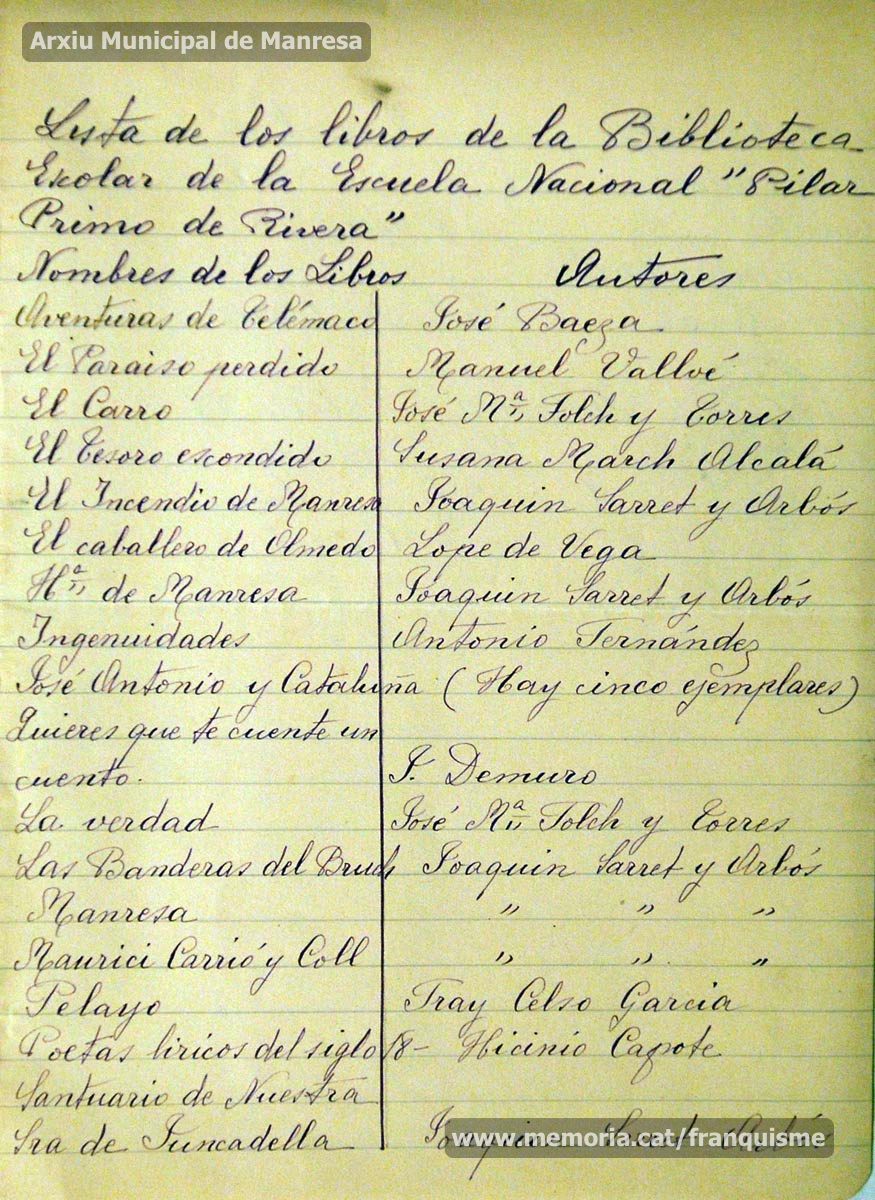 Arxiu Municipal de Manresa
Lista de los libros de la Biblioteca
Escolar de la Escuela Nacional "Pilar
Primo de Rivera"
Nombres de los Libros Autores
Aventuras de Telémaco José Baeza
El Paraiso perdido Manuel Vallvé
El Carro José Mª Folch y Torres
El Tesoro escondido Susana March Alcalá
El Incendio de Manresa Joaquin Sarret y Arbós
El caballero de Olmedo Lope de Vega
Hª de Manresa Joaquin Sarret y Arbós
Ingenuidades Antonio Fernández
José Antonio y Cataluña (Hay cinco ejemplares)
Quieres que te cuente un
cuento. J. Demuro
La verdad José Mª Folch y Torres
Las Banderas del Bruch Joaquin Sarret y Arbós
Manresa " " "
Maurici Carrió y Coll " " "
Pelayo Fray Celso Garcia
Poetas liricos del siglo 18- Hicinio Capote
Santuario de Nuestra
Sra de Juncadella Joaquin Sarret Arbós
www.memoria.cat/franquisme